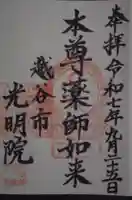 奉拝 令和七年九月二十五日
本尊薬師如来
越谷市
光明院